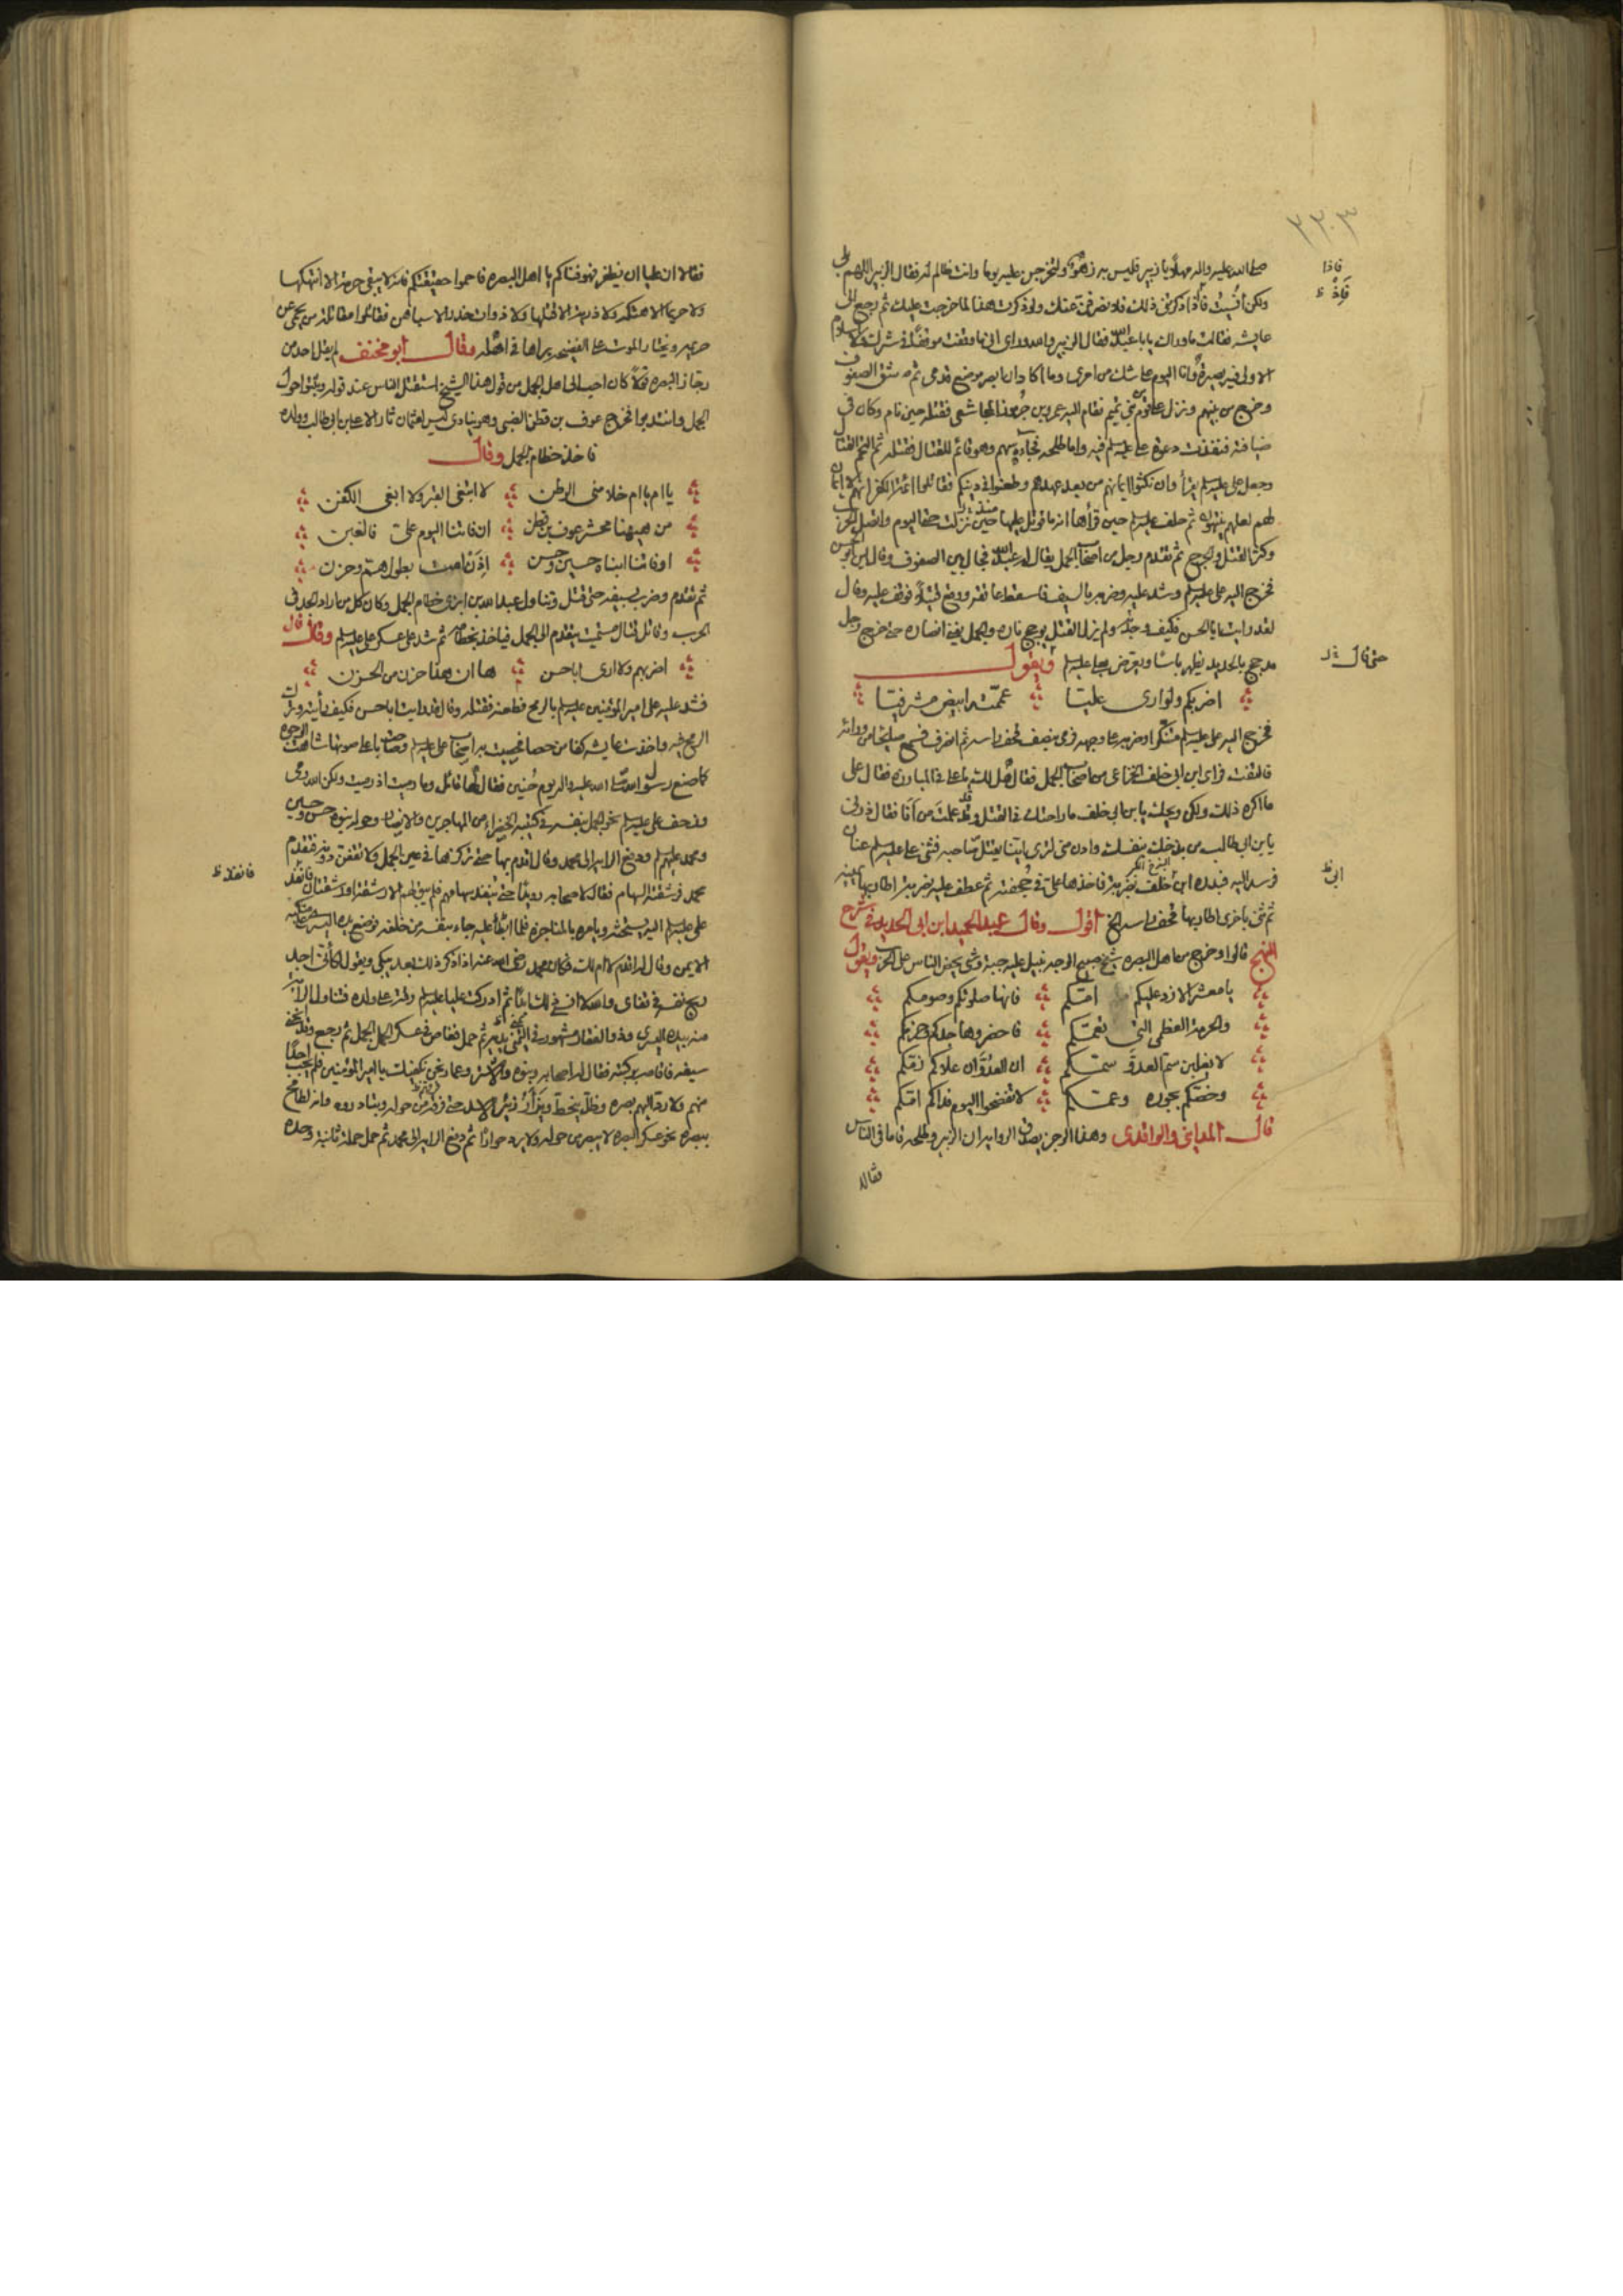 ٣٣٠٣
صلى الله عليه واله مهلا يا زبير فليس به زهو ولتخرجن عليه يوما وانت ظالم له فقال الزبير اللهم بلى
ولكن أنسيت فأذا ذكرتنى ذلك فلا نصرفن عنك ولو ذكرت هذا لما خرجت عليك ثم رجع الى
عايشه فقالت ما وراك يا با عبد الله فقال الزبير والله وراى انى ما وقفت موقفا فى شرك ولا اسلام
الا ولى فيه بصيرة وانا اليوم على شك من امرى وما اكاد ان ابصر موضع قدمى ثم شق الصفوف
وخرج من بينهم ونزل على قوم من بنى تميم فقام اليه عمرو بن جرموز المجاشعى فقتله حين نام وكان فى
ضيافته فنفذت دعوة على عليه السلم فيه واما طلحه فجاءه سهم وهو قائم للقتال فقتله ثم التحم القتال
وجعل على عليه السلم يقرأ وان نكثوا ايمانهم من بعد عهدهم وطعنوا فى دينكم فقاتلوا ائمة الكفر انهم لا ايمان
لهم لعلهم ينتهون ثم حلف عليه السلم حين قرأها انه ما قوتل عليها منذ نزلت حتى اليوم واتصل الحرب
وكثر القتل والجرح ثم تقدم رجل من اصحاب الجمل يقال له عبد الله فجال بين الصفوف وقال اين ابو الحسن
فخرج اليه على عليه السلم وشد عليه وضربه بالسيف فاسقط عاتقه ووقع قتيلا فوقف عليه وقال
لقد رايت ابا الحسن فكيف وجدته ولم يزل القتل يوجج ناره والجمل يفنى انصاره حتى خرج رجل
مدجج بالحديد يظهر باسا ويعرض بعلى عليه السلم ويقول
اضربكم ولو ارى عليا عممته ابيض مشرفيا
فخرج اليه على عليه السلم متنكرا وضربه على وجهه فرمى بنصف قحف راسه ثم انصرف فسمع صايحا من ورائه
فالتفت فراى ابن ابى خلف الخزاعى من اصحاب الجمل فقال هل لك يا على فى المبارزه فقال على
ما اكره ذلك ولكن ويحك يا بن ابى خلف ما راحتك فى القتل وقد علمت من أنا فقال ذرنى
يا بن ابى طالب من بذخك بنفسك وادن منى لترى اينا يقتل صاحبه فثنى على عليه السلم عنان
فرسه اليه فبدره ابن خلف بضربة فاخذها على فى جحفته ثم عطف عليه بضربة اطار بها يمينه
ثم ثنى باخرى اطار بها قحف راسه الخ اقول وقال عبد الحميد ابن ابى الحديد فى شرح
النهج قالوا وخرج من اهل البصره شيخ صبيح الوجه نبيل عليه جبة وشى يحض الناس على الحرب ويقول
يا معشر الازد عليكم امكم فانها صلوتكم وصومكم
والحرمة العظمى التى تعمكم فاحضروها جدكم وحزمكم
لا يغلبن سم العدو سمكم ان العدو ان علاكم زمكم
وخصكم بجوره وعمكم لا تفضحوا اليوم فداكم امكم
قال المدايني والواقدى وهذا الرجز يصدق الرواية ان الزبير وطلحه قاما فى الناس
فقالا
فاذا
فاذ ظ
حتى قال خ‍ل
ابى ظ
فقالا ان عليا ان يظفر فهو فناكم يا اهل البصره فاحموا حقيقتكم فانه لا يبقى حرمة الا انتهكها
ولا حريما الا هتكه ولا ذرية الا قتلها ولا ذوات خدر الا سباهن فقاتلوا مقاتلة من يحمى عن
حريمه ويختار الموت على الفضيحه يراها فى اهله وقال ابو مخنف لم يقل احد من
رجاز البصره قولا كان احب الى اهل الجمل من قول هذا الشيخ استقتل الناس عند قوله وثبتوا حول
الجمل وانتدبوا فخرج عوف بن قطن الضبى وهو ينادى ليس لعثمان ثار الا على بن ابى طالب وولده
فاخذ خطام الجمل وقال
يا ام يا ام خلا منى الوطن لا ابتغى القبر ولا ابغى الكفن
من ههنا محشر عوف بن قطن ان فاتنا اليوم على فالغبن
او فاتنا ابناه حسين وحسن اذن امت بطول هم وحزن
ثم تقدم وضرب بسيفه حتى قتل وتناول عبد الله بن ابزى خطام الجمل وكان كل من اراد الجد فى
الحرب وقاتل قتال مستميت يتقدم الى الجمل فياخذ بخطامه ثم شد على عسكر على عليه السلم وقال
اضربهم ولا ارى ابا حسن ها ان هذا حزن من الحزن
فشد عليه على امير المؤمنين عليه السلم بالرمح فطعنه فقتله وقال قد رايت ابا حسن فكيف رأيته وترك
الرمح فيه واخذت عايشه كفا من حصا فحصبت به اصحاب على عليه السلم وصاحت باعلى صوتها شاهت الوجوه
كما صنع رسول الله صلى الله عليه واله يوم حنين فقال لها قائل وما رميت اذ رميت ولكن الله رمى
وزحف على عليه السلم نحو الجمل بنفسه فى كتيبته الخضراء من المهاجرين والانصار وحوله بنوه حسن وحسين
ومحمد عليهم السلم ودفع الراية الى محمد وقال اقدم بها حتى تركزها فى عين الجمل ولا تقفن دونه فتقدم
محمد فرشقته السهام فقال لاصحابه رويدا حتى تنفد سهامهم فلم يبق لهم الا رشقة او رشقتان فانفذ
على عليه السلم اليه يستحثه ويامره بالمناجزه فلما ابطأ عليه جاء بنفسه من خلفه فوضع يده اليسرى على منكبه
الايمن وقال له اقدم لا ام لك فكان محمد رضى الله عنه اذا ذكر ذلك بعد يبكى ويقول لكأنى اجد
ريح نفسه فى قفاى والله لا انسى ذلك ابدا ثم ادركت عليا عليه السلم رقة على ولده فتناول الراية
منه بيده اليسرى وذو الفقار مشهور فى اليمنى يديه ثم حمل فغاص فى عسكر الجمل ثم رجع وقد انحنى
سيفه فاقامه بركبته فقال له اصحابه وبنوه والاشتر وعمار نحن نكفيك يا امير المؤمنين فلم يجب احدا
منهم ولا رد اليهم بصره وظل ينحط ويزأر زئير الاسد حتى فرق من حوله وتبادروه وانه لطامح
ببصره نحو عسكر البصره لا يبصر من حوله ولا يرد حوارا ثم دفع الراية الى محمد ثم حمل حملة ثانية وحده
فانفد ظ